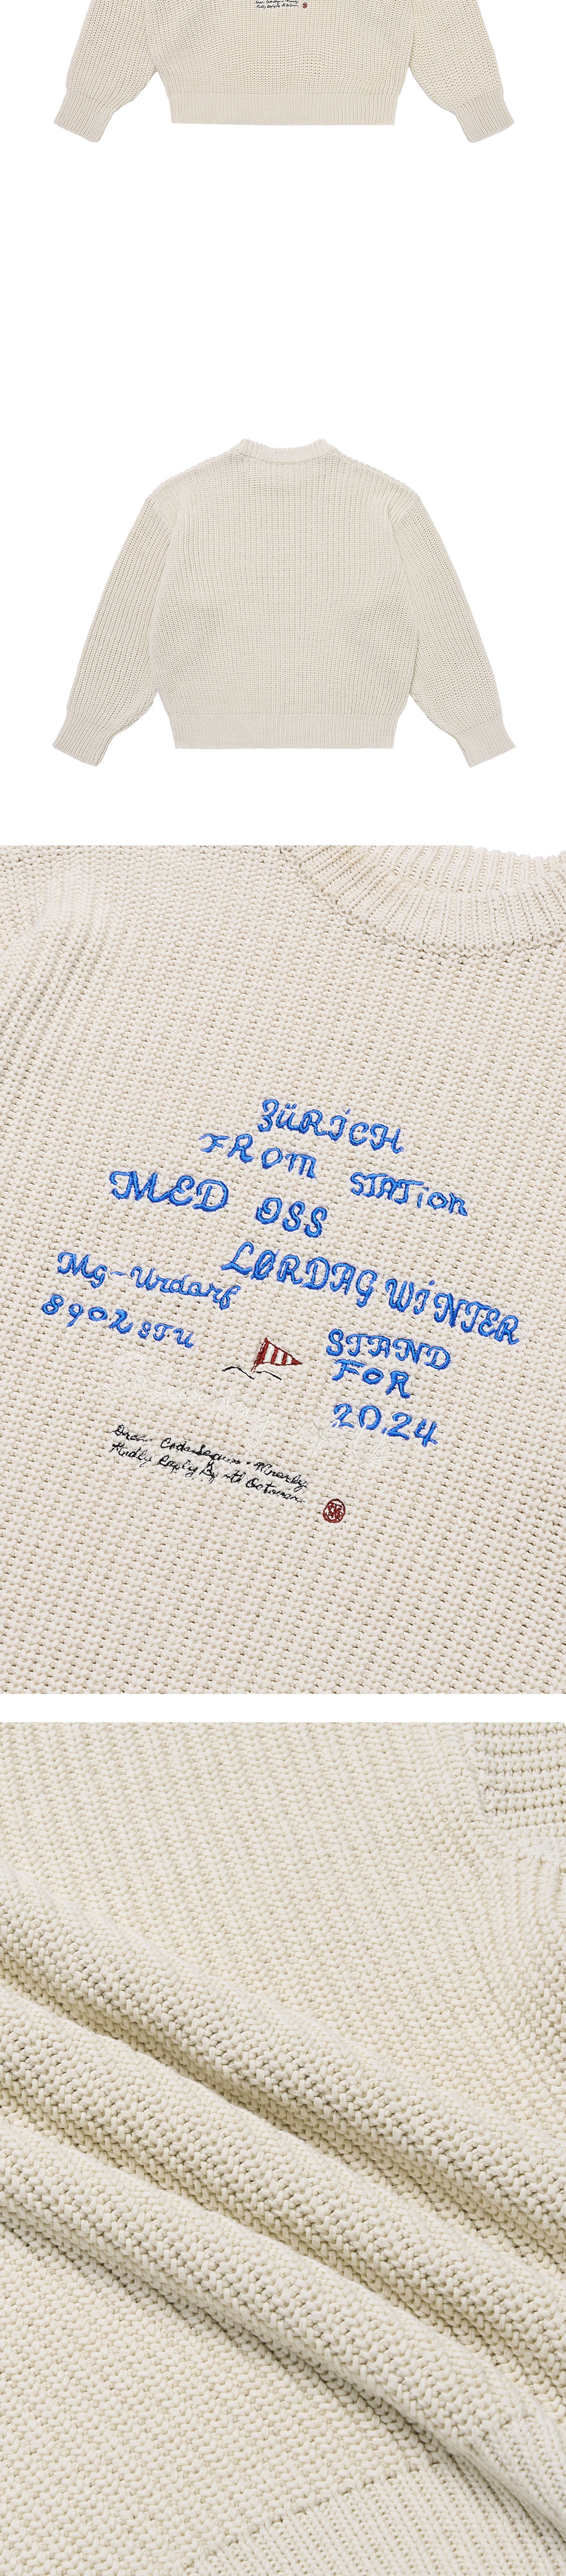 ZÜRICH
FROM STATION
MED OSS
LØRDAG WINTER
Mg-Urdarf
8902 STU
STAND
FOR
20.24
Kindly Reply By